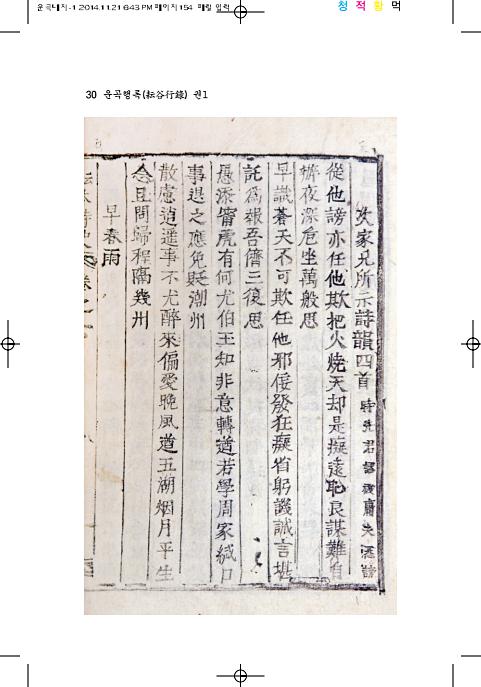 운곡내지-1 2014.11.21 6:43 PM 페이지154 매킬 입력
청 적 황 먹
30 운곡행록(耘谷行錄) 권1
次家兄所示詩韻四首
從他謗亦任他欺把火燒天却是癡遠恥良謀難自
擠夜深危坐萬般思
早識蒼天不可欺任他邪佞發狂癡省躬譏誡言堪
託爲報吾儕三復思
愚添甯虎有何尤伯玉知非意轉遒若學周家緘口
事退之應免貶潮州
散慮逍遥事不尤醉來偏愛晩風遒五湖烟月平生
念且問歸程隔幾州
早春雨